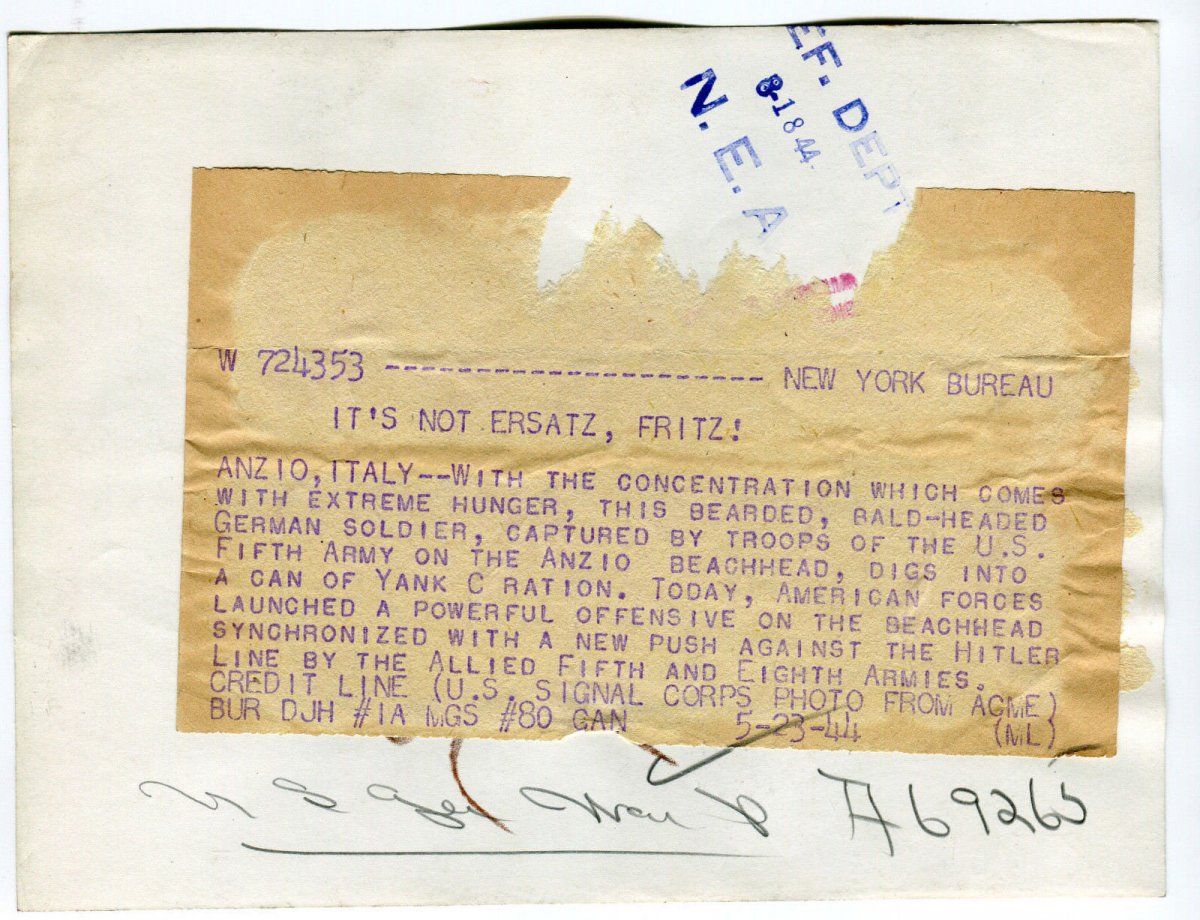 EF. DEPT
8-1844
N. E. A
W 724353 ---------------------- NEW YORK BUREAU
IT'S NOT ERSATZ, FRITZ!
ANZIO, ITALY--WITH THE CONCENTRATION WHICH COMES
WITH EXTREME HUNGER, THIS BEARDED, BALD-HEADED
GERMAN SOLDIER, CAPTURED BY TROOPS OF THE U.S.
FIFTH ARMY ON THE ANZIO BEACHHEAD, DIGS INTO
A CAN OF YANK C RATION. TODAY, AMERICAN FORCES
LAUNCHED A POWERFUL OFFENSIVE ON THE BEACHHEAD
SYNCHRONIZED WITH A NEW PUSH AGAINST THE HITLER
LINE BY THE ALLIED FIFTH AND EIGHTH ARMIES.
CREDIT LINE (U.S. SIGNAL CORPS PHOTO FROM ACME)
BUR DJH #1A MGS #80 CAN 5-23-44 (ML)
A69265